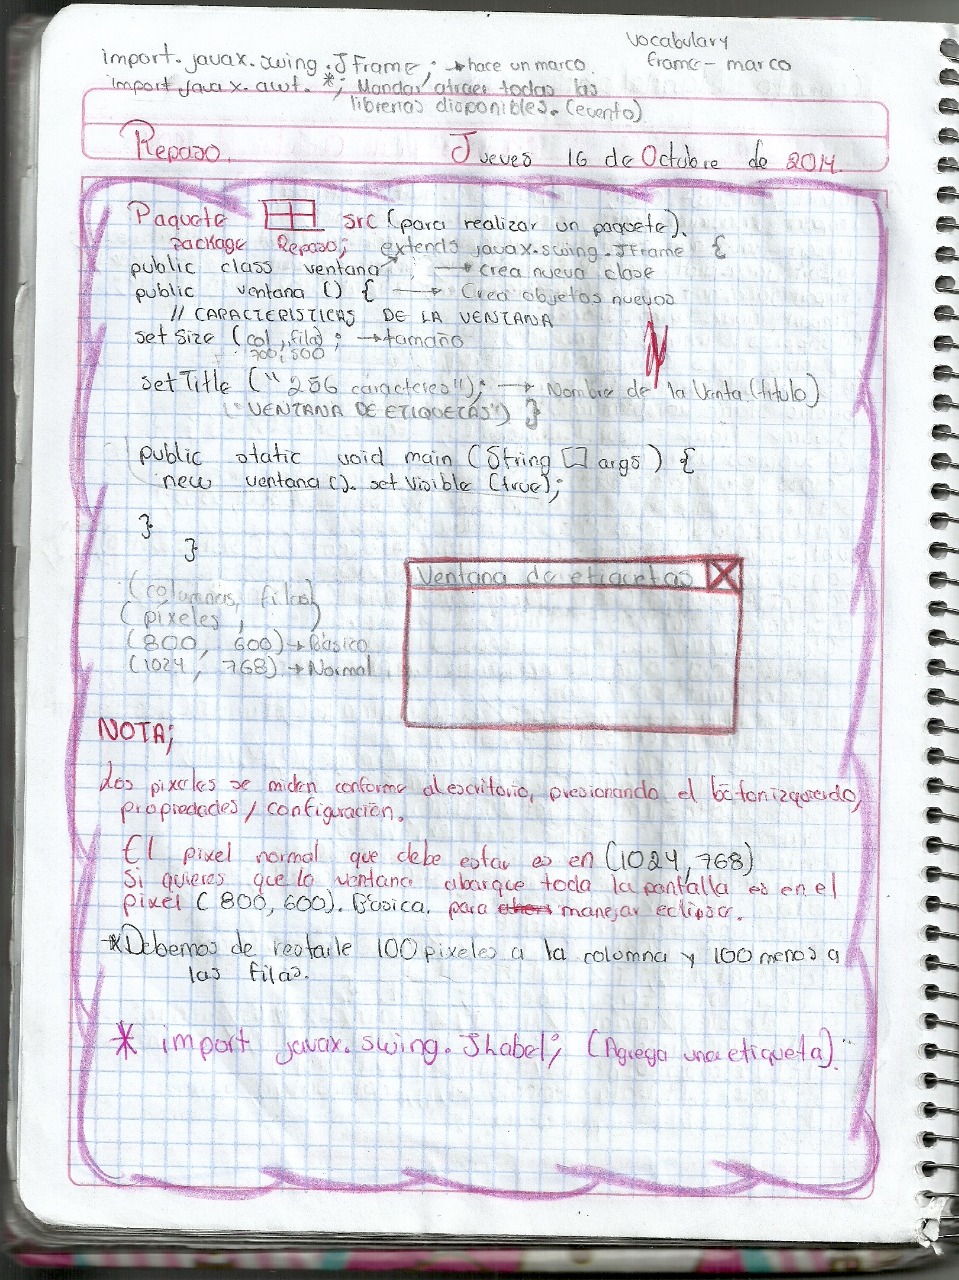 Vocabulary
frame - marco
import. javax. swing. JFrame; → hace un marco.
import java x. awt. *; Mandar atraer todas las
librerias disponibles. (evento)
Repaso. Jueves 16 de Octubre de 2014.
Paquete src (para realizar un paquete).
package Repaso; extends javax.swing.JFrame {
public class ventana → crea nueva clase
public ventana () { → Crea objetos nuevos
// CARACTERISTICAS DE LA VENTANA
set Size (col, fila) ; → tamaño
700, 500
setTitle ("256 caracteres"); → Nombre de la Venta (titulo)
("VENTANA DE ETIQUETAS") }
public static void main (String [] args) {
new ventana (). set Visible (true);
}
}
Ventana de etiquetas X
(columnas, filas)
(pixeles , )
(800, 600) → Básico
(1024, 768) → Normal
NOTA;
Los pixeles se miden conforme al escritorio, presionando el botonizquierdo,
propiedades / configuración.
El pixel normal que debe estar es en (1024, 768)
Si quieres que la ventana abarque toda la pantalla es en el
pixel (800, 600). Basica. para manejar eclipse.
*Debemos de restarle 100 pixeles a la columna y 100 menos a
las filas.
* import javax. swing. Jhabel; (Agrega una etiqueta).